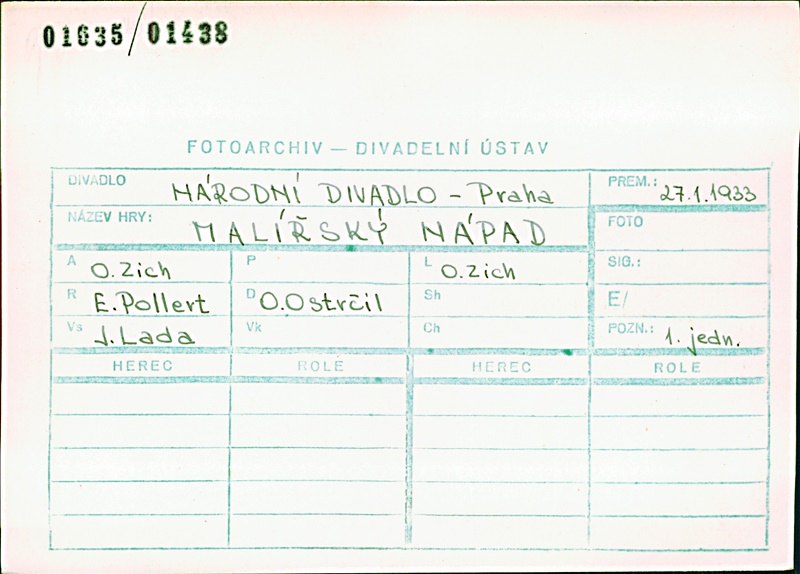 01635/01438
FOTOARCHIV — DIVADELNÍ ÚSTAV
DIVADLO NÁRODNÍ DIVADLO - Praha PREM.: 27.1.1933
NÁZEV HRY: MALÍŘSKÝ NÁPAD FOTO
A O. Zich P L O. Zich SIG.:
R E. Pollert D O. Ostrčil Sh E/
Vs J. Lada Vk Ch POZN.: 1. jedn.
HEREC ROLE HEREC ROLE